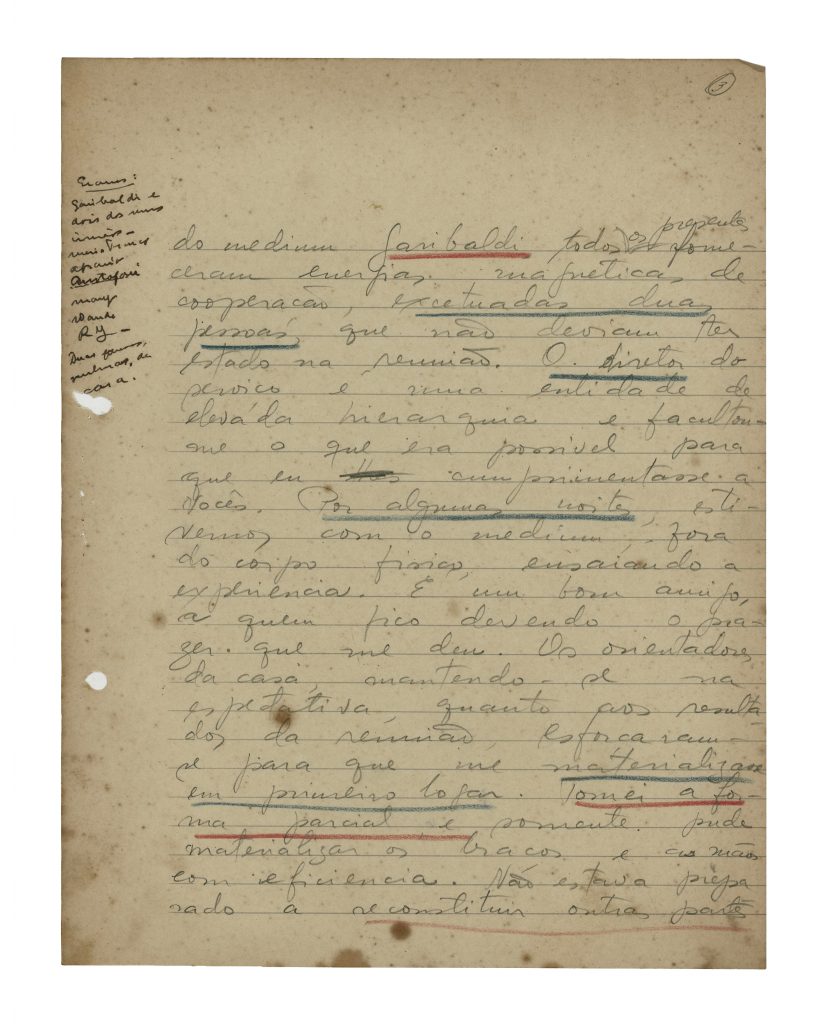 3
Eramos:
Garibaldi e
dois dos seus
irmãos -
many
Wando
R Y -
Duas
cára.
do medium Garibaldi todos os presentes forne-
ceram energias magnéticas de
cooperação, excetuadas duas
pessoas, que não deviam ter
estado na reunião. O diretor do
serviço é uma entidade de
elevada hierarquia e facultou-
me o que éra possivel para
que eu cumprimentasse a
vocês. Por algumas noites, esti-
vemos com o medium, fora
do corpo fisico, ensaiando a
experiencia. É um bom amigo,
a quem fico devendo o pra-
zer que me deu. Os orientadores
da casa, mantendo-se na
espetativa, quanto aos resulta-
dos da reunião, esforcaram-
se para que me materializasse
em primeiro logar. Tomei a for-
ma parcial e somente pude
materializar os braços e as mãos
com eficiencia. Não estava prepa
rado a reconstituir outras partes